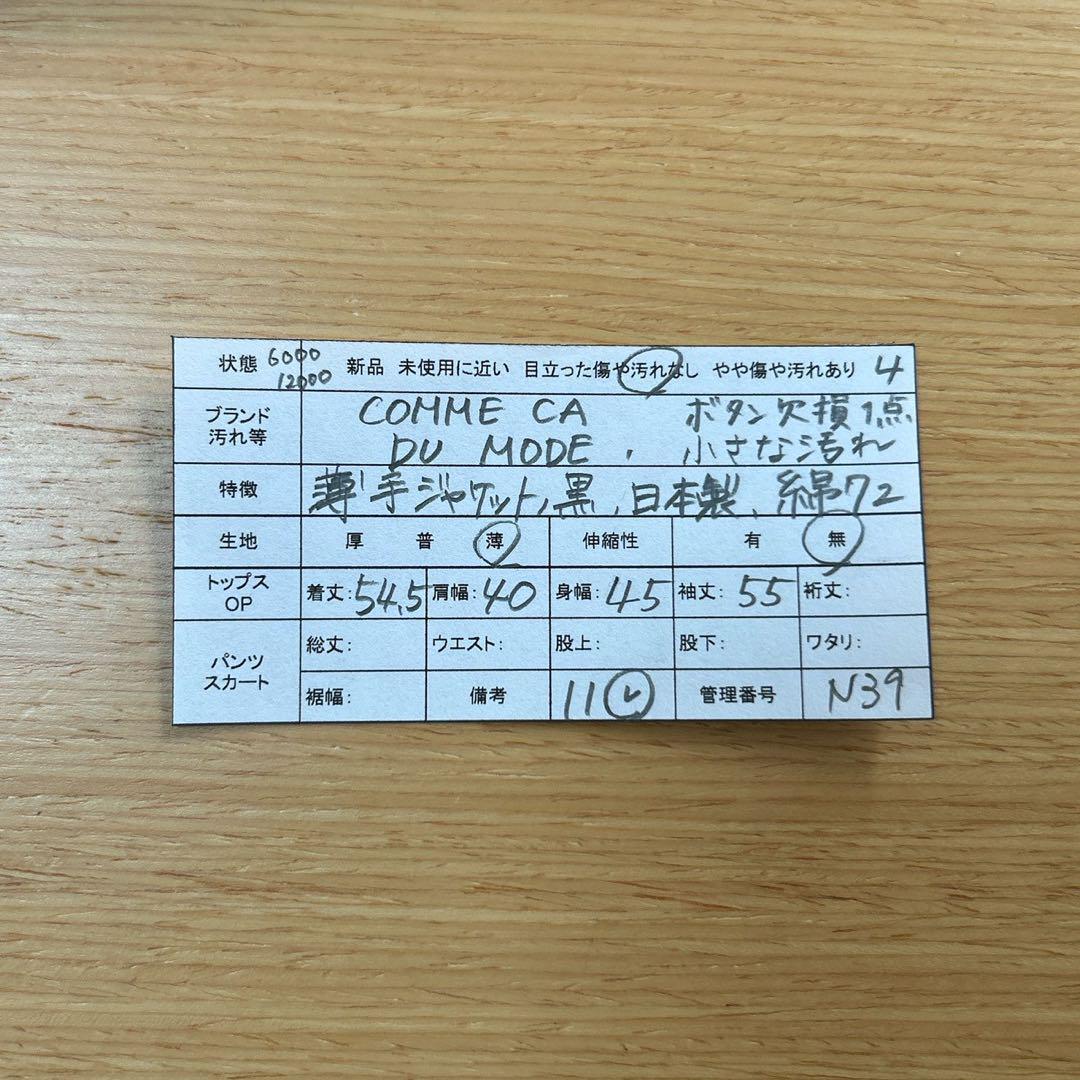 状態 6000 新品 未使用に近い 目立った傷や汚れなし やや傷や汚れあり 4
12000
ブランド COMME CA ボタン欠損1点
汚れ等 DU MODE . 小さな汚れ
特徴 薄手ジャケット, 黒, 日本製、綿72
生地 厚 普 薄 伸縮性 有 無
トップス 着丈: 54.5 肩幅: 40 身幅: 45 袖丈: 55 裄丈:
OP
パンツ 総丈: ウエスト: 股上: 股下: ワタリ:
スカート 裾幅: 備考 11 レ 管理番号 N39